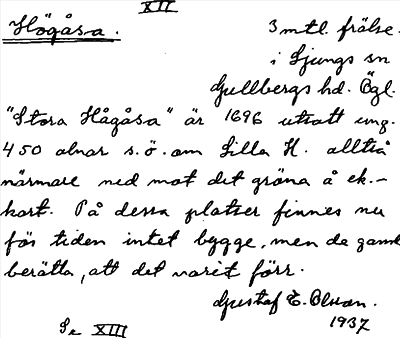 XII
Högåsa. 3 mtl. frälse
i Ljungs sn
Gullbergs hd. Ögl.
"Stora Hågåsa" är 1696 utsatt ung.
450 alnar s.ö. om Lilla H. alltså
närmare ned mot det gröna å ek.-
kart. På dessa platser finnes nu
för tiden intet bygge, men de gamla
berätta, att det varit förr.
Gustaf E. Olsson.
1937
Se XIII